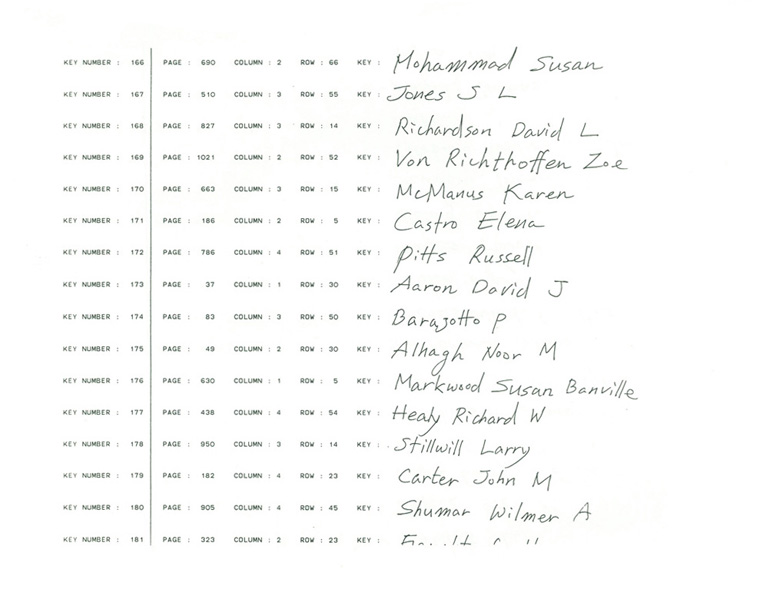 KEY NUMBER : 166 PAGE : 690 COLUMN : 2 ROW : 66 KEY : Mohammad Susan
KEY NUMBER : 167 PAGE : 510 COLUMN : 3 ROW : 55 KEY : Jones S L
KEY NUMBER : 168 PAGE : 827 COLUMN : 3 ROW : 14 KEY : Richardson David L
KEY NUMBER : 169 PAGE : 1021 COLUMN : 2 ROW : 52 KEY : Von Richthoffen Zoe
KEY NUMBER : 170 PAGE : 663 COLUMN : 3 ROW : 15 KEY : McManus Karen
KEY NUMBER : 171 PAGE : 186 COLUMN : 2 ROW : 5 KEY : Castro Elena
KEY NUMBER : 172 PAGE : 786 COLUMN : 4 ROW : 51 KEY : Pitts Russell
KEY NUMBER : 173 PAGE : 37 COLUMN : 1 ROW : 30 KEY : Aaron David J
KEY NUMBER : 174 PAGE : 83 COLUMN : 3 ROW : 50 KEY : Barazotto P
KEY NUMBER : 175 PAGE : 49 COLUMN : 2 ROW : 30 KEY : Alhagh Noor M
KEY NUMBER : 176 PAGE : 630 COLUMN : 1 ROW : 5 KEY : Markwood Susan Banville
KEY NUMBER : 177 PAGE : 438 COLUMN : 4 ROW : 54 KEY : Healy Richard W
KEY NUMBER : 178 PAGE : 950 COLUMN : 3 ROW : 14 KEY : Stillwill Larry
KEY NUMBER : 179 PAGE : 182 COLUMN : 4 ROW : 23 KEY : Carter John M
KEY NUMBER : 180 PAGE : 905 COLUMN : 4 ROW : 45 KEY : Shumar Wilmer A
KEY NUMBER : 181 PAGE : 323 COLUMN : 2 ROW : 23 KEY :